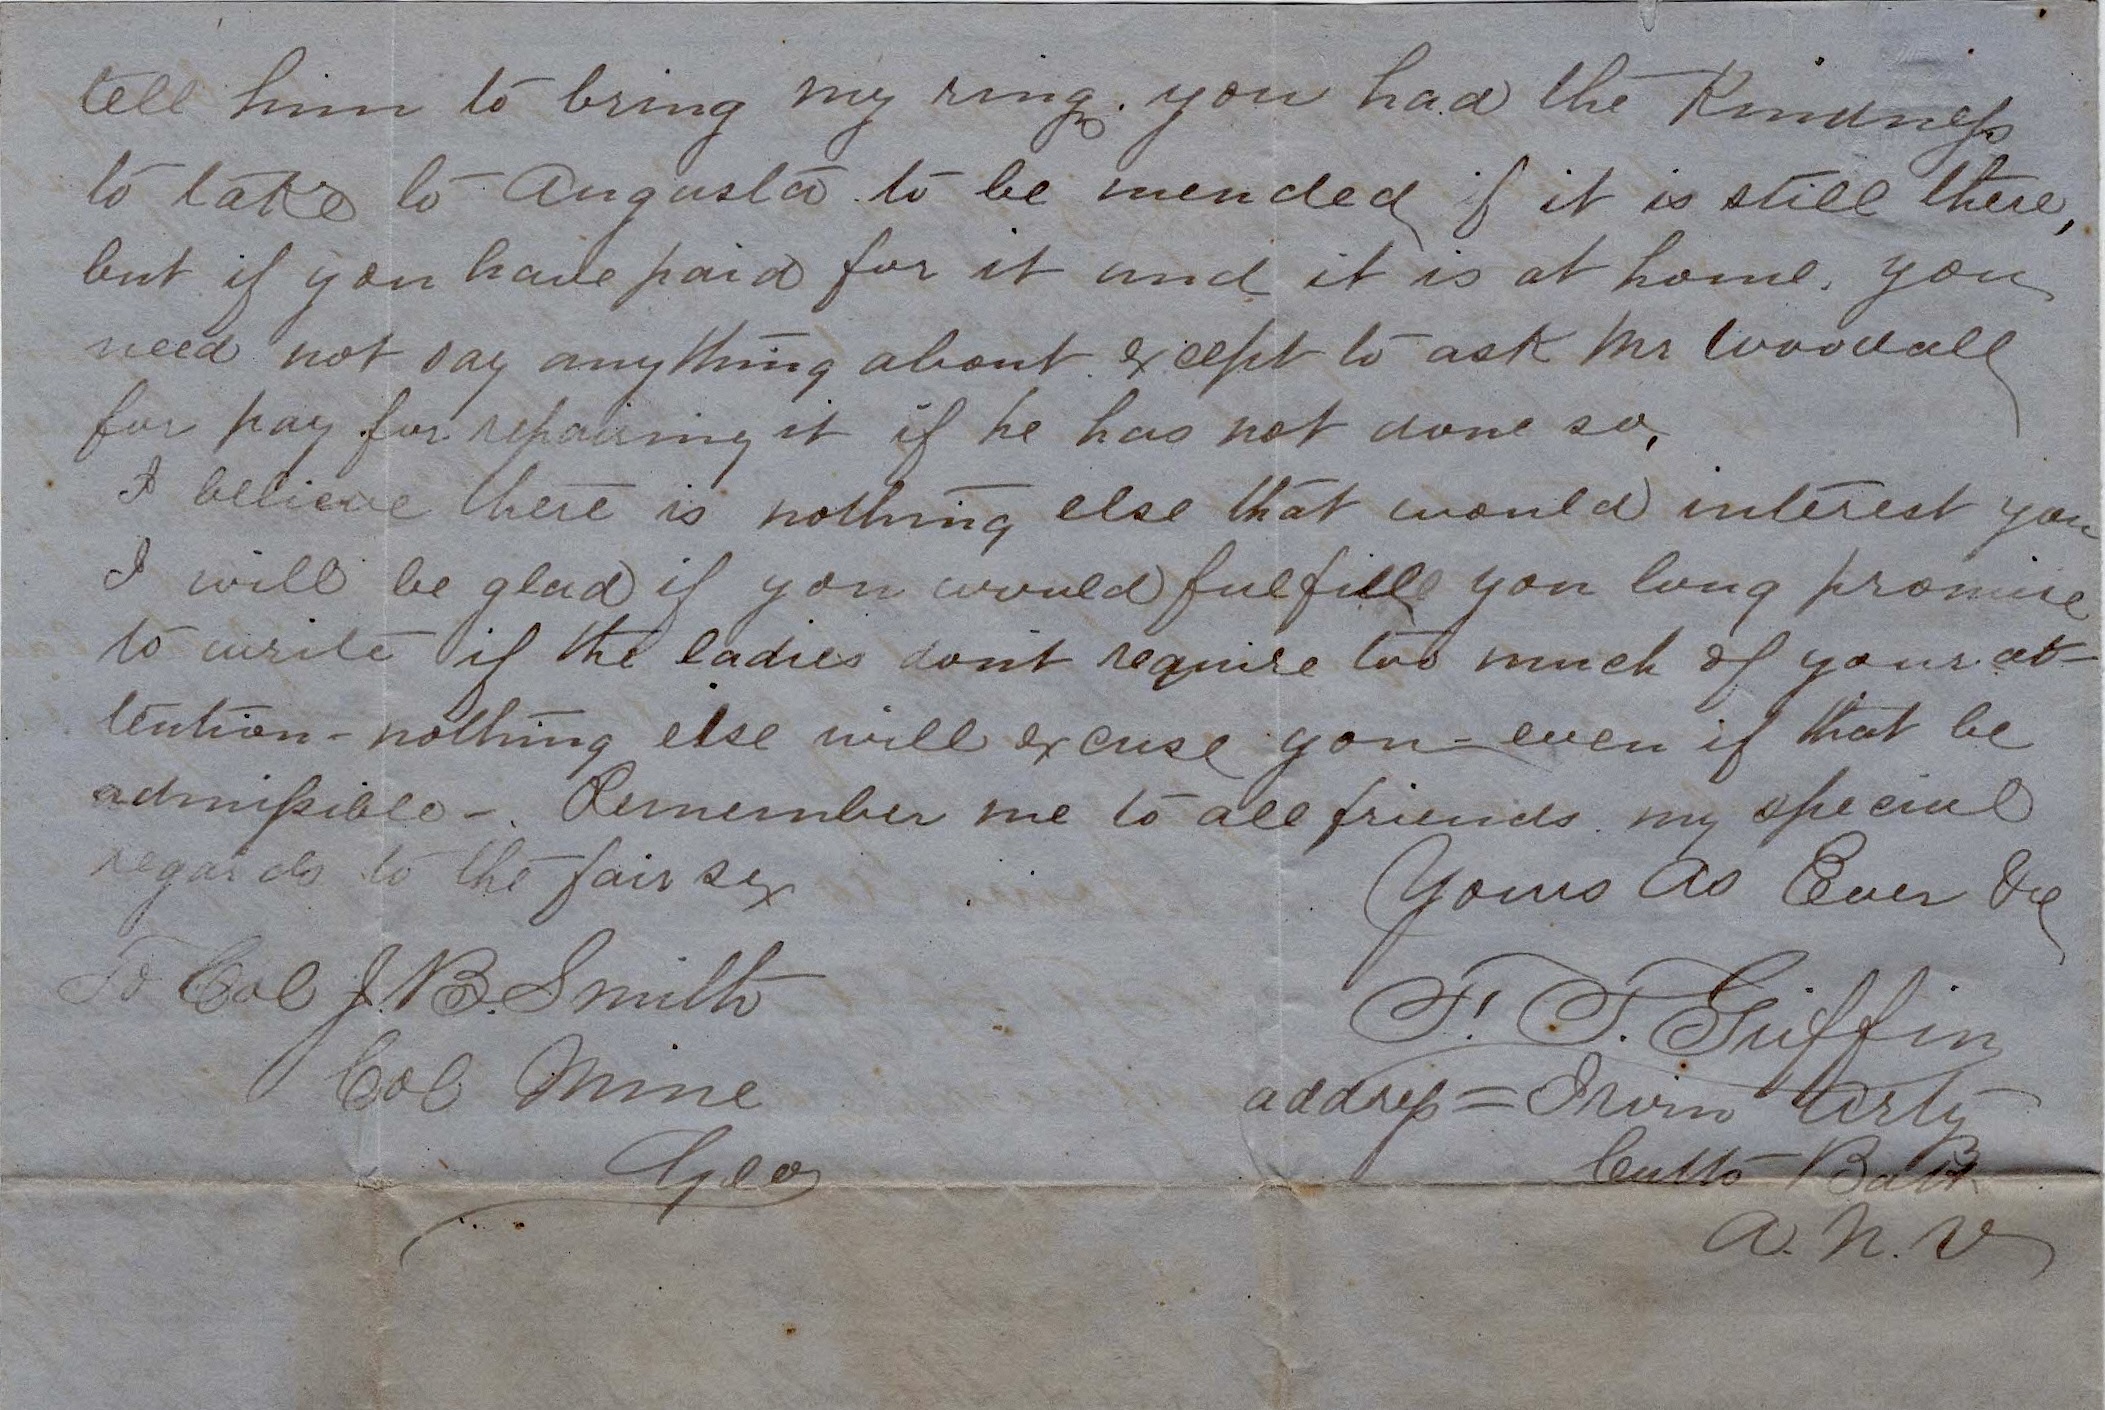 tell him to bring my ring. you had the Kindness
to take to Augusta to be mended if it is still there,
but if you have paid for it and it is at home. you
need not say anything about except to ask Mr Woodall
for pay for repairing it if he has not done so.
I believe there is nothing else that would interest you
I will be glad if you would fulfill you long promise
to write if the ladies dont require too much of your at-
tention - nothing else will excuse you - even if that be
admissible -. Remember me to all friends. my special
regards to the fair sex
Yours As Ever &c
To Col J. B. Smith
Col Mine
Geo
F. T. Griffin
address = Irwin Arty
Cutts Batt
A. N. V